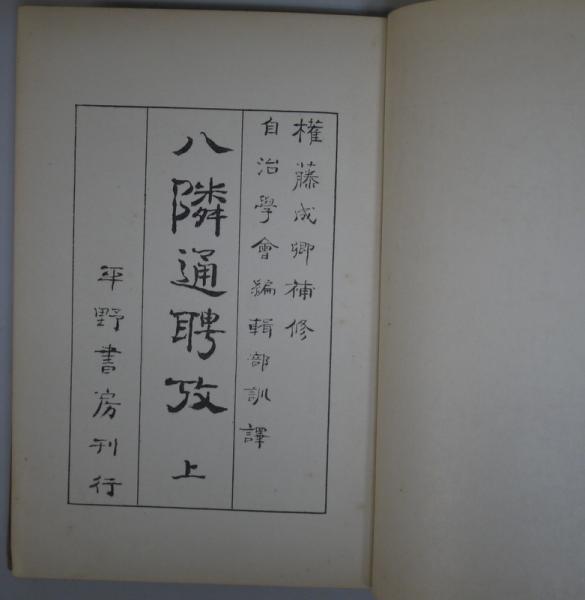 權藤成卿補修
自治學會編輯部訓譯
八隣通聘攷 上
平野書房刊行